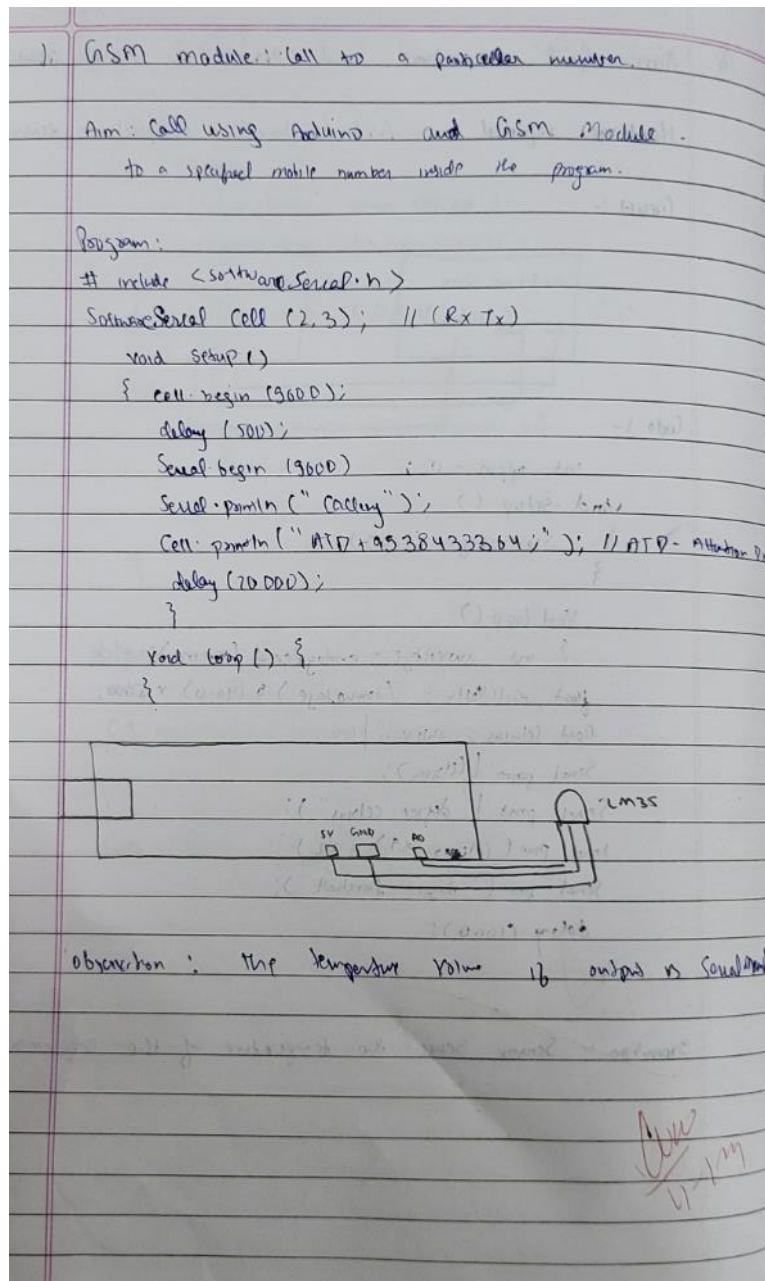 1. GSM module: Call to a particular number.
Aim: Call using Arduino and GSM Module.
to a specified mobile number inside the program.
Program:
# include <SoftwareSerial.h>
SoftwareSerial Cell (2,3); // (Rx Tx)
void setup ()
{ cell.begin (9600);
delay (500);
Serial.begin (9600) ;
Serial.println (" Calling");
Cell.println (" ATD+9538433364;"); // ATD- Attention
delay (20000);
}
void loop () {
}
LM35
5V GND A0
observation : The temperature value is output